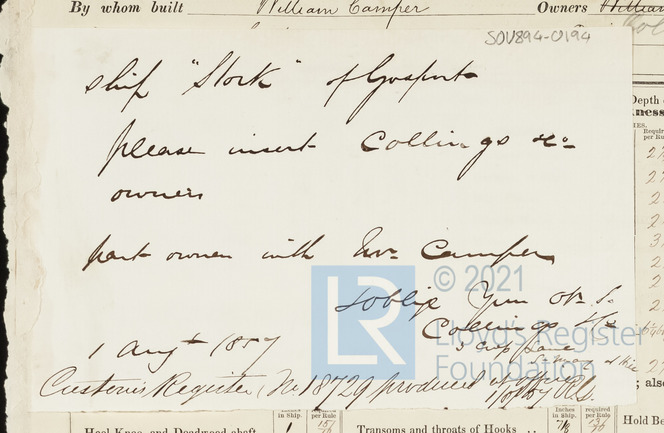 By whom built William Camper Owners William
SOU894-0194
Ship "Stork" of Gosport
please insert Collings & Co
owners
part owner with Wm Camper
& oblige Your Ob. S.
Collings & Co
3 Cop Lane
1 Augt 1857
Customs Register No 18729 produced
© 2021
LR
Lloyd's Register
Foundation
Depth
ness
; also
Heel-Knee, and Deadwood abaft
Inches
in Ship.
required
per Rule
Transoms and throats of Hooks
Inches
in Ship.
required
per Rule
Hold